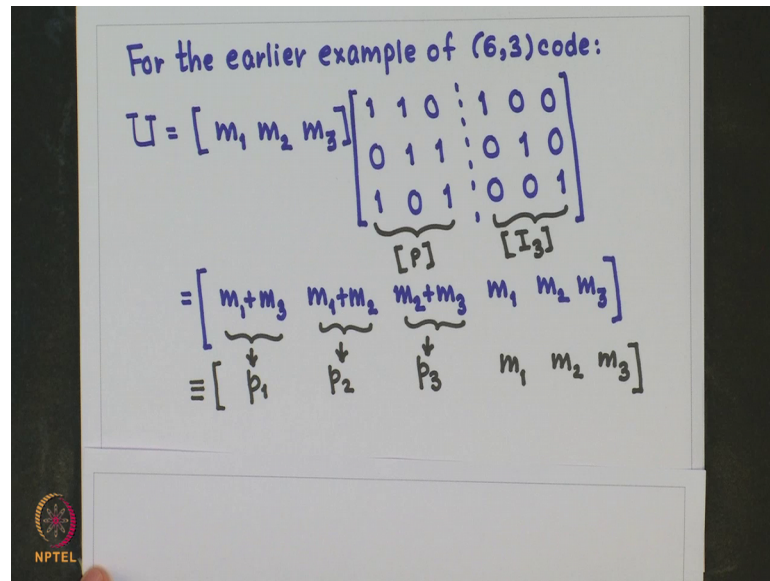 For the earlier example of (6,3) code:
U = [ m₁ m₂ m₃ ] [ 1 1 0 ⋮ 1 0 0
0 1 1 ⋮ 0 1 0
1 0 1 ⋮ 0 0 1 ]
[P] [I₃]
= [ m₁+m₃ m₁+m₂ m₂+m₃ m₁ m₂ m₃ ]
≡ [ p₁ p₂ p₃ m₁ m₂ m₃ ]
NPTEL